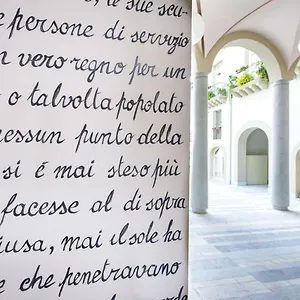 le sue scu-
e persone di servizio
n vero regno per un
o talvolta popolato
nessun punto della
si é mai steso più
facesse al di sopra
iusa, mai il sole ha
e che penetravano